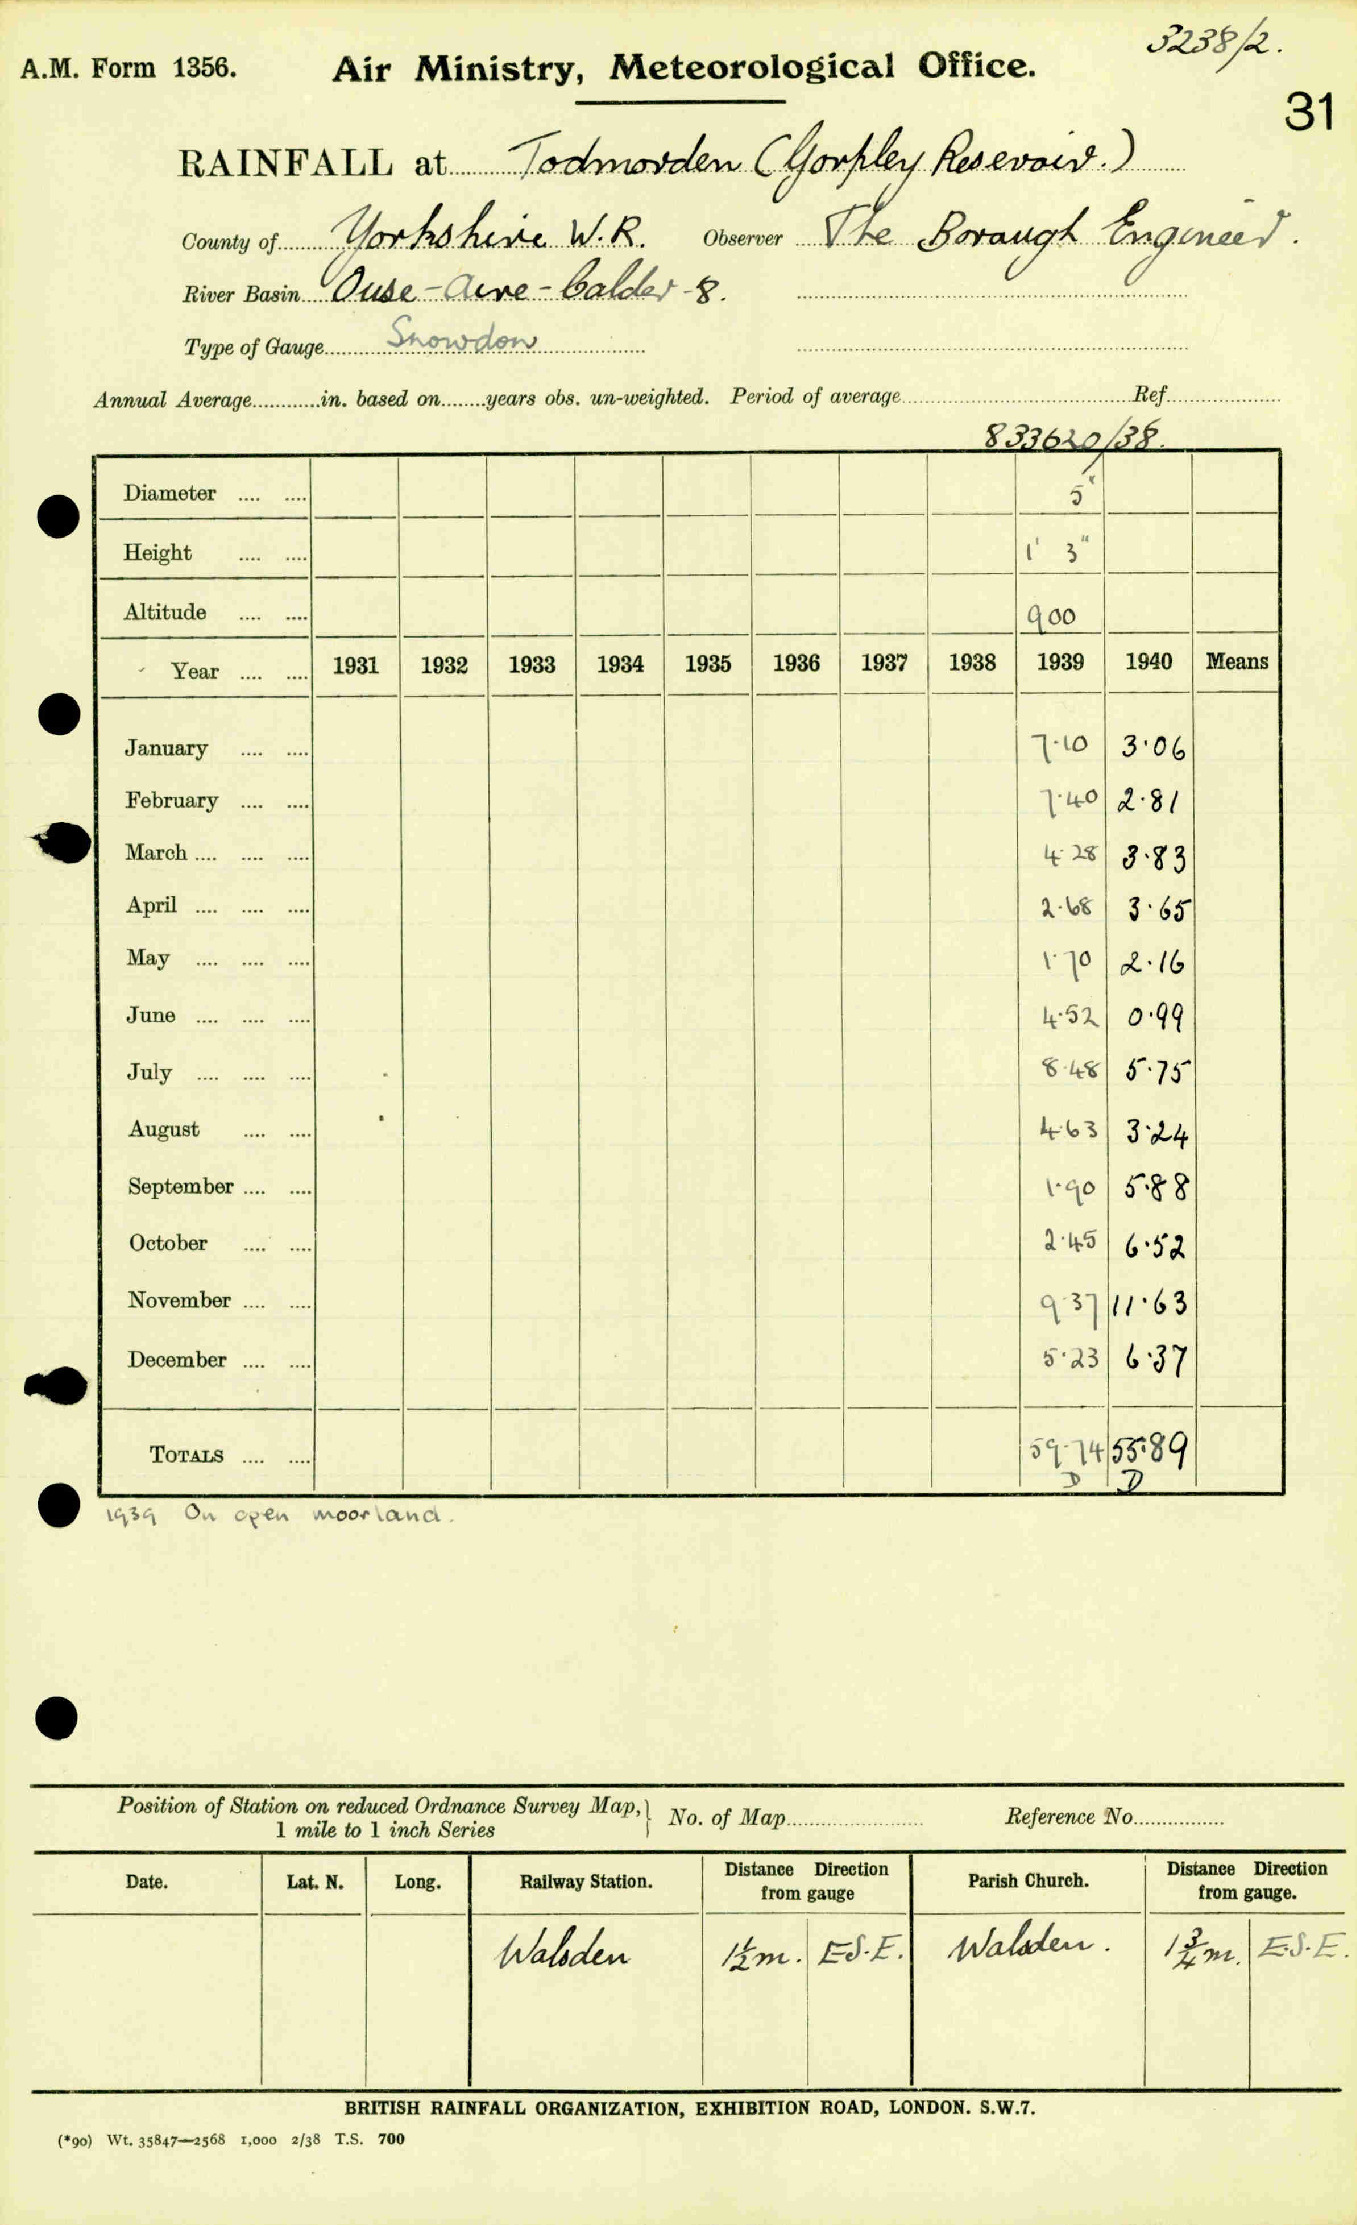 3238/2.
A.M. Form 1356. Air Ministry, Meteorological Office.
31
RAINFALL at Todmorden (Gorpley Resevoir.)
County of Yorkshire W.R. Observer The Borough Engineer.
River Basin Ouse-Aire-Calder-8.
Type of Gauge Snowdon
Annual Average in. based on years obs. un-weighted. Period of average Ref
833620/38.
Diameter 5"
Height 1' 3"
Altitude 900
Year 1931 1932 1933 1934 1935 1936 1937 1938 1939 1940 Means
January 7.10 3.06
February 7.40 2.81
March 4.28 3.83
April 2.68 3.65
May 1.70 2.16
June 4.52 0.99
July 8.48 5.75
August 4.63 3.24
September 1.90 5.88
October 2.45 6.52
November 9.37 11.63
December 5.23 6.37
TOTALS 59.74 55.89
D D
1939 On open moorland.
Position of Station on reduced Ordnance Survey Map, } No. of Map Reference No.
1 mile to 1 inch Series
Date. Lat. N. Long. Railway Station. Distance Direction from gauge Parish Church. Distance Direction from gauge.
Walsden 1½m. E.S.E. Walsden. 1¾m. E.S.E.
BRITISH RAINFALL ORGANIZATION, EXHIBITION ROAD, LONDON. S.W.7.
(*90) Wt. 35847—2568 1,000 2/38 T.S. 700